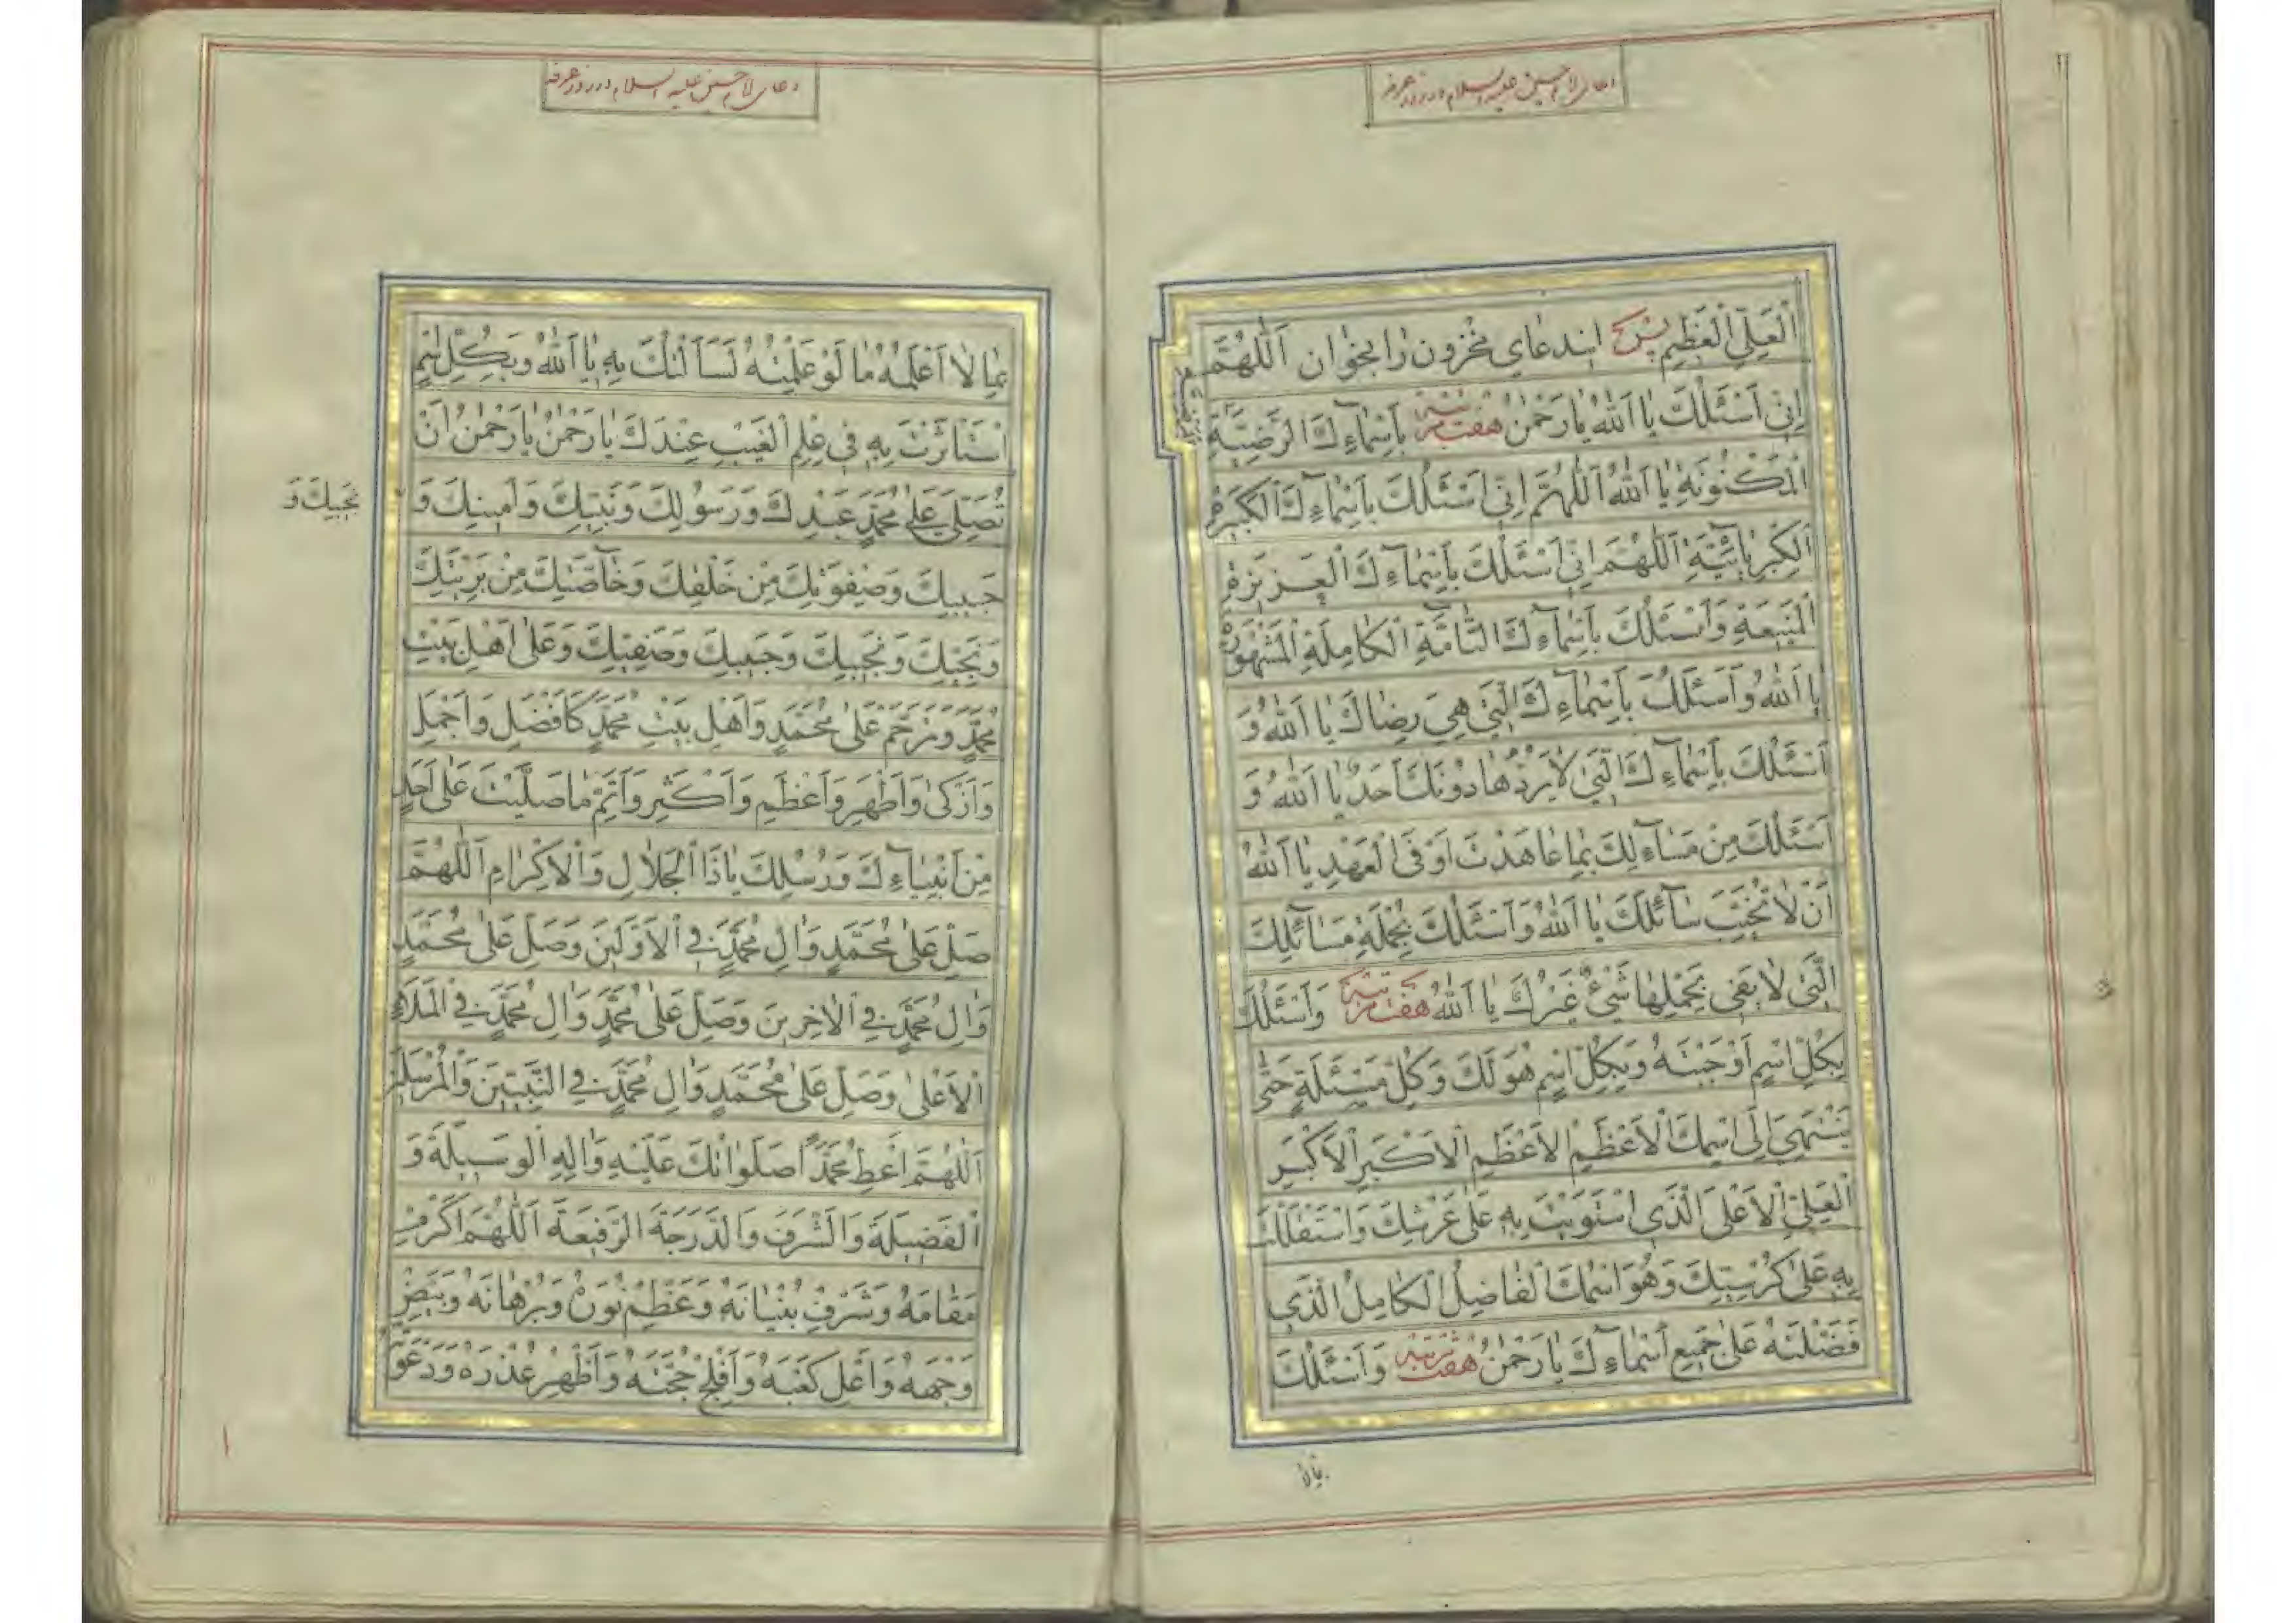 دعای امام حسین علیه السلام در روز عرفه
اَلْعَلِیِّ الْعَظیمِ پس این دعای مخزون را بخوان اَللّٰهُمَّ
اِنّی اَسْئَلُكَ یا اَللّٰهُ یا رَحْمٰنُ هفت مرتبه بِاَسْمآءِكَ الرَّضِیَّةِ
الْمَكْنُونَةِ یا اَللّٰهُ اَللّٰهُمَّ اِنّی اَسْئَلُكَ بِاَسْمآءِكَ الْكَبیرَةِ
الْكِبْرِیائِیَّةِ اَللّٰهُمَّ اِنّی اَسْئَلُكَ بِاَسْمآءِكَ الْعَزیزَةِ
الْمَنیعَةِ وَاَسْئَلُكَ بِاَسْمآءِكَ التّامَّةِ الْكامِلَةِ الْمَشْهُورَةِ
یا اَللّٰهُ وَاَسْئَلُكَ بِاَسْمآءِكَ الَّتی هِیَ رِضاكَ یا اَللّٰهُ وَ
اَسْئَلُكَ بِاَسْمآءِكَ الَّتی لا یَرُدُّها دُونَكَ اَحَدٌ یا اَللّٰهُ وَ
اَسْئَلُكَ مِنْ مَسآءِلِكَ بِما عاهَدْتَ اَوْفَی الْعَهْدِ یا اَللّٰهُ
اَنْ لا تُخَیِّبَ سآئِلَكَ یا اَللّٰهُ وَاَسْئَلُكَ بِجُمْلَةِ مَسآئِلِكَ
الَّتی لا یَفی بِحَمْلِها شَیْءٌ غَیْرُكَ یا اَللّٰهُ هفت مرتبه وَاَسْئَلُكَ
بِكُلِّ اسْمٍ اَوْجَبْتَهُ وَبِكُلِّ اسْمٍ هُوَ لَكَ وَكُلِّ مَسْئَلَةٍ حَتّٰی
یَنْتَهِیَ اِلَی اسْمِكَ الْاَعْظَمِ الْاَعْظَمِ الْاَكْبَرِ الْاَكْبَرِ
الْعَلِیِّ الْاَعْلَی الَّذی اسْتَوَیْتَ بِهِ عَلٰی عَرْشِكَ وَاسْتَقْلَلْتَ
بِهِ عَلٰی كُرْسِیِّكَ وَهُوَ اسْمُكَ الْفاضِلُ الْكامِلُ الَّذی
فَضَّلْتَهُ عَلٰی جَمیعِ اَسْمآءِكَ یا رَحْمٰنُ هفت مرتبه وَاَسْئَلُكَ
بمالا
دعای امام حسین علیه السلام در روز عرفه
بِما لا اَعْلَمُهُ ما لَوْ عَلِمْتُهُ لَسَاَلْتُكَ بِهِ یا اَللّٰهُ وَبِكُلِّ اسْمٍ
اسْتَاْثَرْتَ بِهِ فی عِلْمِ الْغَیْبِ عِنْدَكَ یا رَحْمٰنُ یا رَحْمٰنُ اَنْ
تُصَلِّیَ عَلٰی مُحَمَّدٍ عَبْدِكَ وَرَسُولِكَ وَنَبِیِّكَ وَاَمینِكَ وَ
نَجیبِكَ وَ
حَبیبِكَ وَصَفْوَتِكَ مِنْ خَلْقِكَ وَخآصَّتِكَ مِنْ بَرِیَّتِكَ
وَنَجِیِّكَ وَنَجیبِكَ وَحَبیبِكَ وَصَفِیِّكَ وَعَلٰی اَهْلِ بَیْتِ
مُحَمَّدٍ وَتَرَحَّمْ عَلٰی مُحَمَّدٍ وَاَهْلِ بَیْتِ مُحَمَّدٍ كَاَفْضَلِ وَاَجْمَلِ
وَاَزْكٰی وَاَطْهَرِ وَاَعْظَمِ وَاَكْثَرِ وَاَتَمِّ ما صَلَّیْتَ عَلٰی اَحَدٍ
مِنْ اَنْبِیآءِكَ وَرُسُلِكَ یا ذَا الْجَلالِ وَالْاِكْرامِ اَللّٰهُمَّ
صَلِّ عَلٰی مُحَمَّدٍ وَاٰلِ مُحَمَّدٍ فِی الْاَوَّلینَ وَصَلِّ عَلٰی مُحَمَّدٍ
وَاٰلِ مُحَمَّدٍ فِی الْاٰخِرینَ وَصَلِّ عَلٰی مُحَمَّدٍ وَاٰلِ مُحَمَّدٍ فِی الْمَلَاءِ
الْاَعْلٰی وَصَلِّ عَلٰی مُحَمَّدٍ وَاٰلِ مُحَمَّدٍ فِی النَّبِیّینَ وَالْمُرْسَلینَ
اَللّٰهُمَّ اَعْطِ مُحَمَّدًا صَلَواتُكَ عَلَیْهِ وَاٰلِهِ الْوَسیلَةَ وَ
الْفَضیلَةَ وَالشَّرَفَ وَالدَّرَجَةَ الرَّفیعَةَ اَللّٰهُمَّ اَكْرِمْ
مَقامَهُ وَشَرِّفْ بُنْیانَهُ وَعَظِّمْ نُورَهُ وَبُرْهانَهُ وَبَیِّضْ
وَجْهَهُ وَاَعْلِ كَعْبَهُ وَاَفْلِجْ حُجَّتَهُ وَاَظْهِرْ عُذْرَهُ وَدَعْوَتَهُ